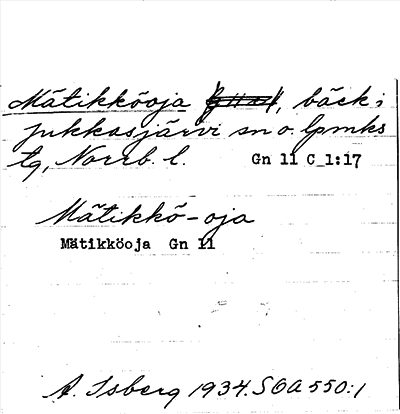 Mätikköoja, bäck i
Jukkasjärvi sn o. lpmks
tg, Norrb. l. Gn 11 C_1:17
Mätikkö-oja
Mätikköoja Gn 11
A. Isberg 1934. SOA 550:1